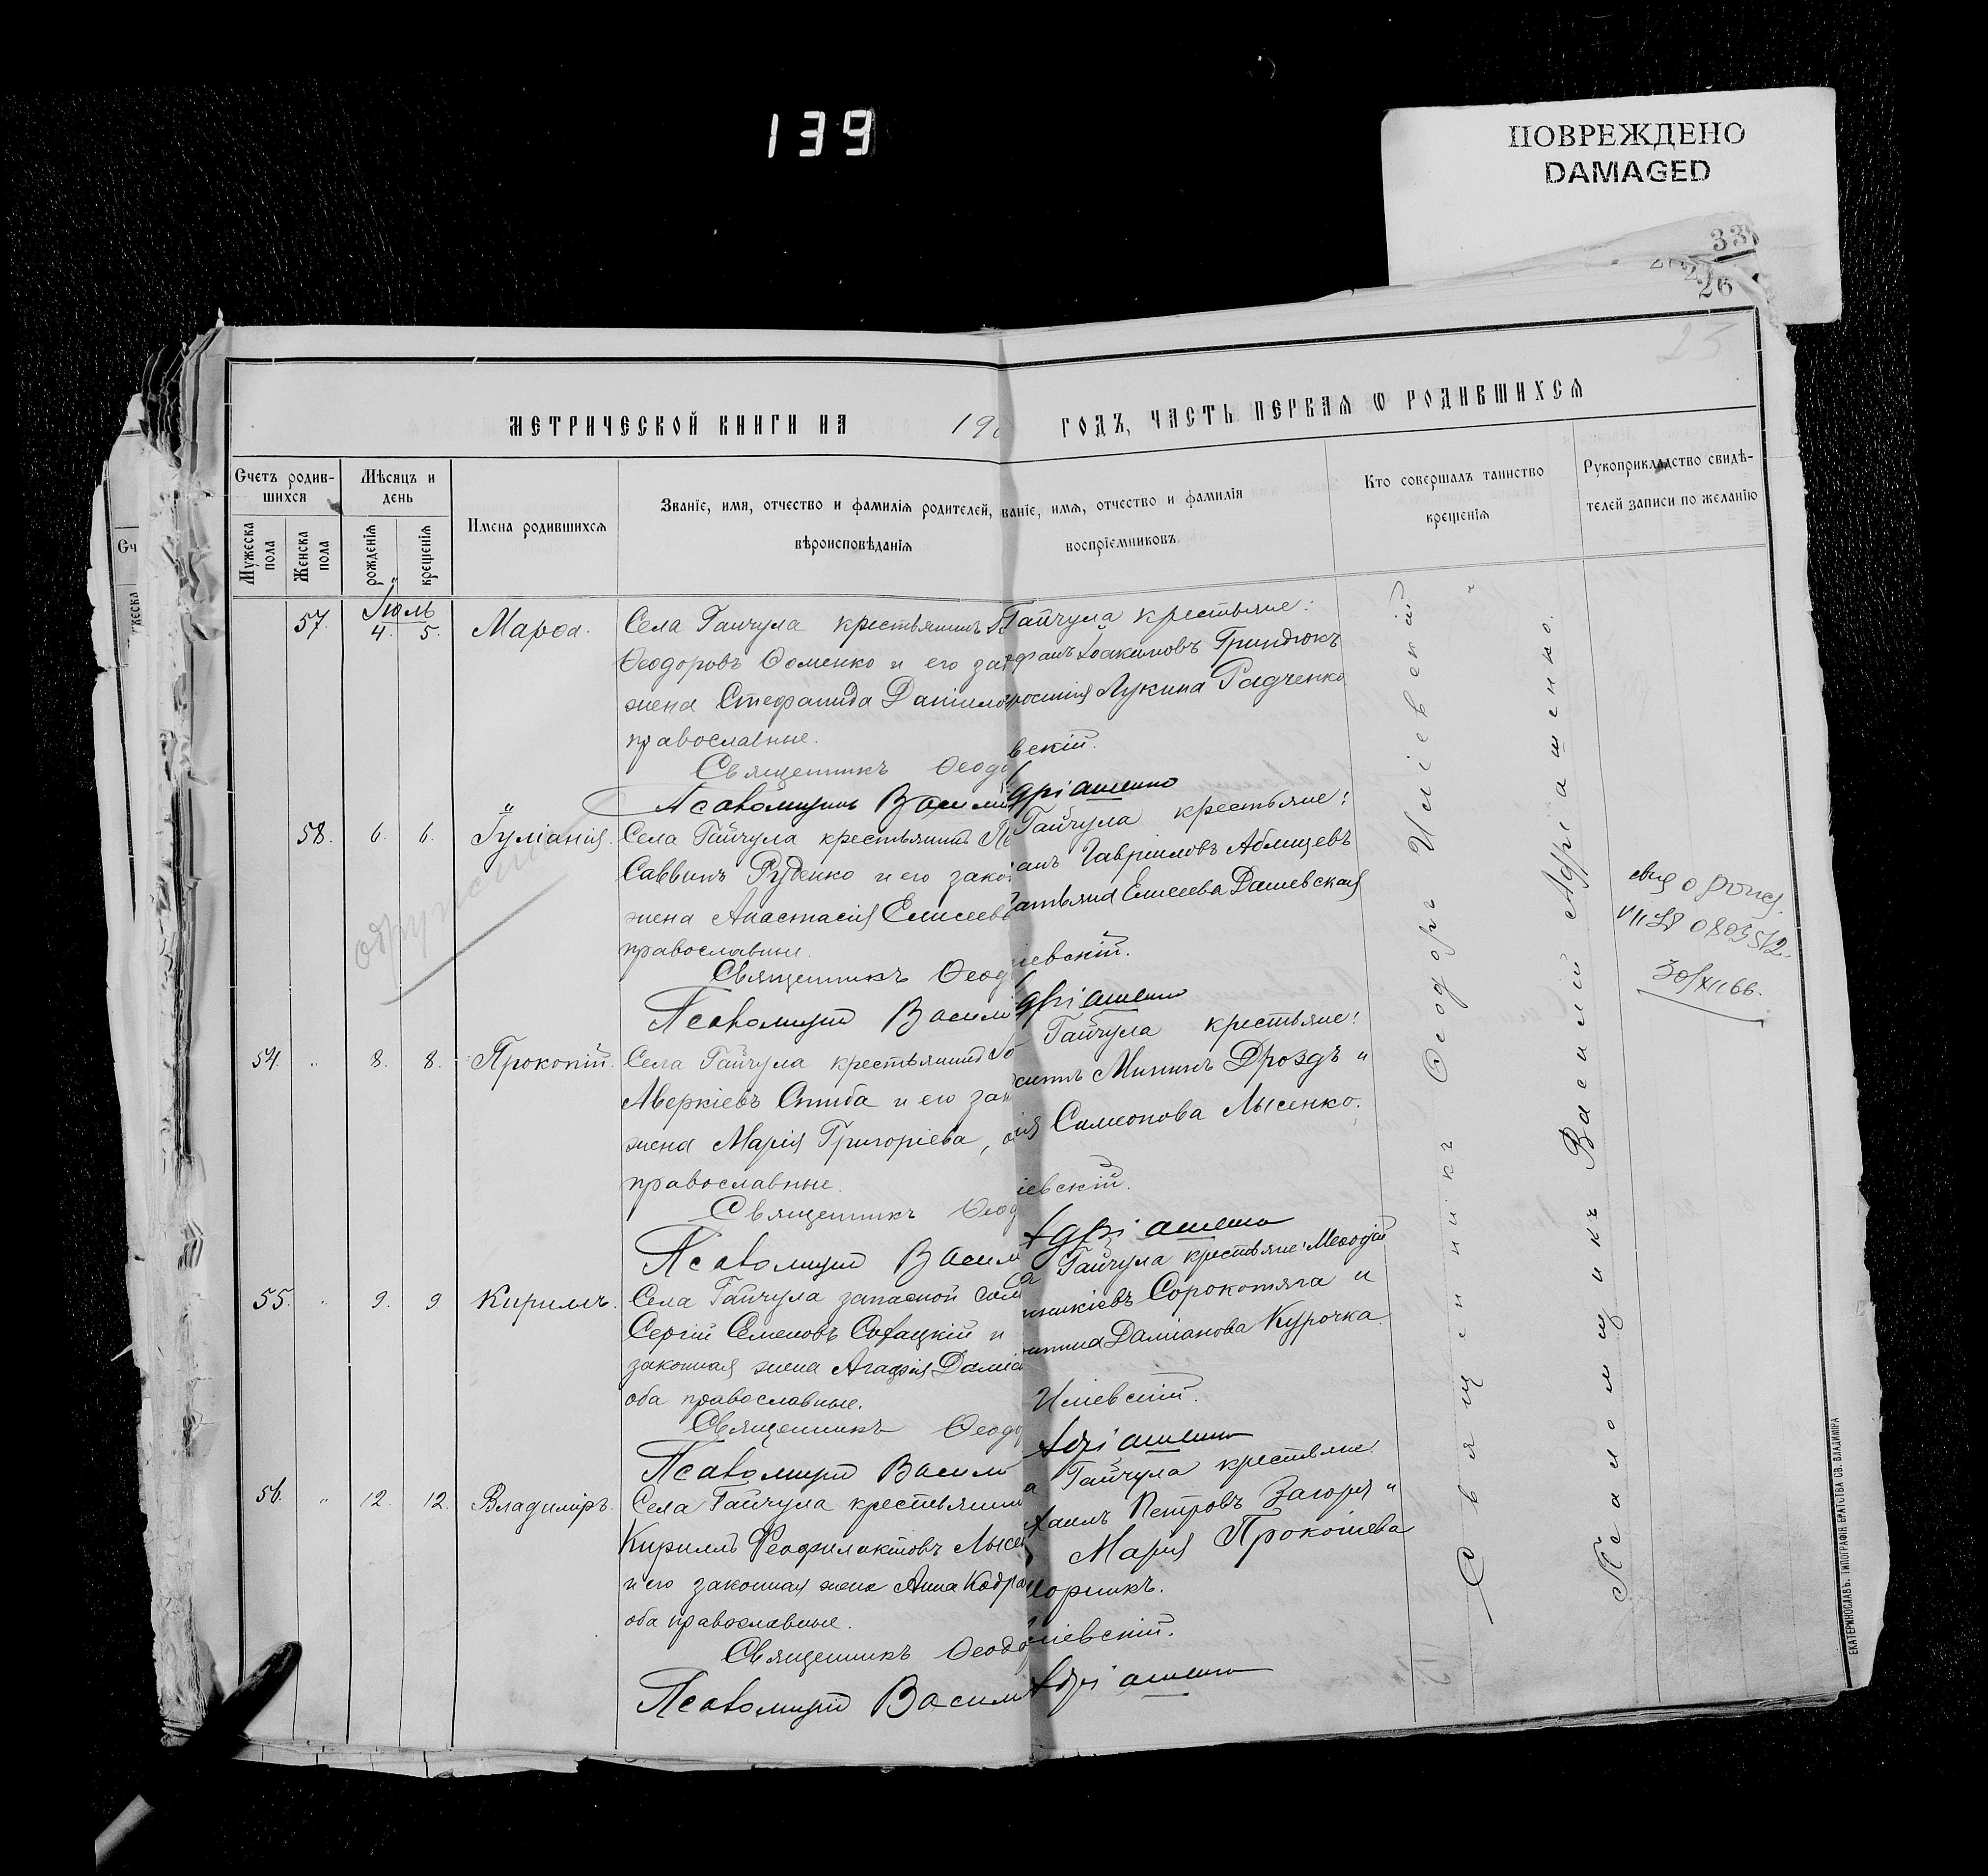 139
ПОВРЕЖДЕНО
DAMAGED
33
26
25
МЕТРИЧЕСКОЙ КНИГИ НА 19 ГОДЪ, ЧАСТЬ ПЕРВАЯ Ѡ РОДИВШИХСЯ
Счетъ родив-
шихся
Мужеска пола
Женска пола
Мѣсяцъ и
день
рожденія
крещенія
Имена родившихся
Званіе, имя, отчество и фамилія родителей,
вѣроисповѣданія
ваніе, имя, отчество и фамилія
воспріемниковъ
Кто совершалъ таинство
крещенія
Рукоприкладство свидѣ-
телей записи по желанію
Іюль
57. 4. 5. Марѳа. Села Гайчула крестьянинъ
Ѳеодоровъ Ѳоменко и его за
жена Стефанида Данило
православные.
Священникъ Ѳеодо
Псаломщикъ Васил
Гайчула крестьяне:
фанъ Іоакимовъ Гриндюкъ
росинія Лукина Радченко
вскій.
дріашенко
58. 6. 6. Іуліанія. Села Гайчула крестьянинъ
Саввинъ Руденко и его зако
жена Анастасія Елисеев
православные.
Священникъ Ѳеод
Псаломщикъ Васили
Гайчула крестьяне:
анъ Гавриловъ Аблицевъ
атьяна Елисеева Дашевская
іевскій.
дріашенко
54. " 8. 8. Прокопій. Села Гайчула крестьянинъ
Аверкіевъ Скиба и его зак
жена Марія Григоріева, о
православные.
Священникъ Ѳеод
Псаломщикъ Васил
Гайчула крестьяне:
Мининъ Дроздъ и
ія Симеонова Лысенко.
іевскій.
Адріашенко
55. " 9. 9. Кириллъ. Села Гайчула запасной
Сергій Семеновъ и
законная жена Агафія Даміа
оба православные.
Священникъ Ѳеодо
Псаломщикъ Васили
Гайчула крестьяне: Меѳодій
Сорокотяга и
Даміанова Курочка.
Иліевскій.
Адріашенко
56. " 12. 12. Владиміръ. Села Гайчула крестьянинъ
Кириллъ Феофилактовъ Лысе
и его законная жена Анна Кодра
оба православные.
Священникъ Ѳеодо
Псаломщикъ Васили
а Гайчула крестьяне:
хаилъ Петровъ Загоря и
Марія Прокопіева
орникъ.
ліевскій.
Адріашенко
Священникъ Ѳеодоръ Иліевскій
Псаломщикъ Василій Адріашенко.
30/XII 66.
ЕКАТЕРИНОСЛАВЪ. ТИПОГРАФІЯ БРАТСТВА СВ. ВЛАДИМІРА